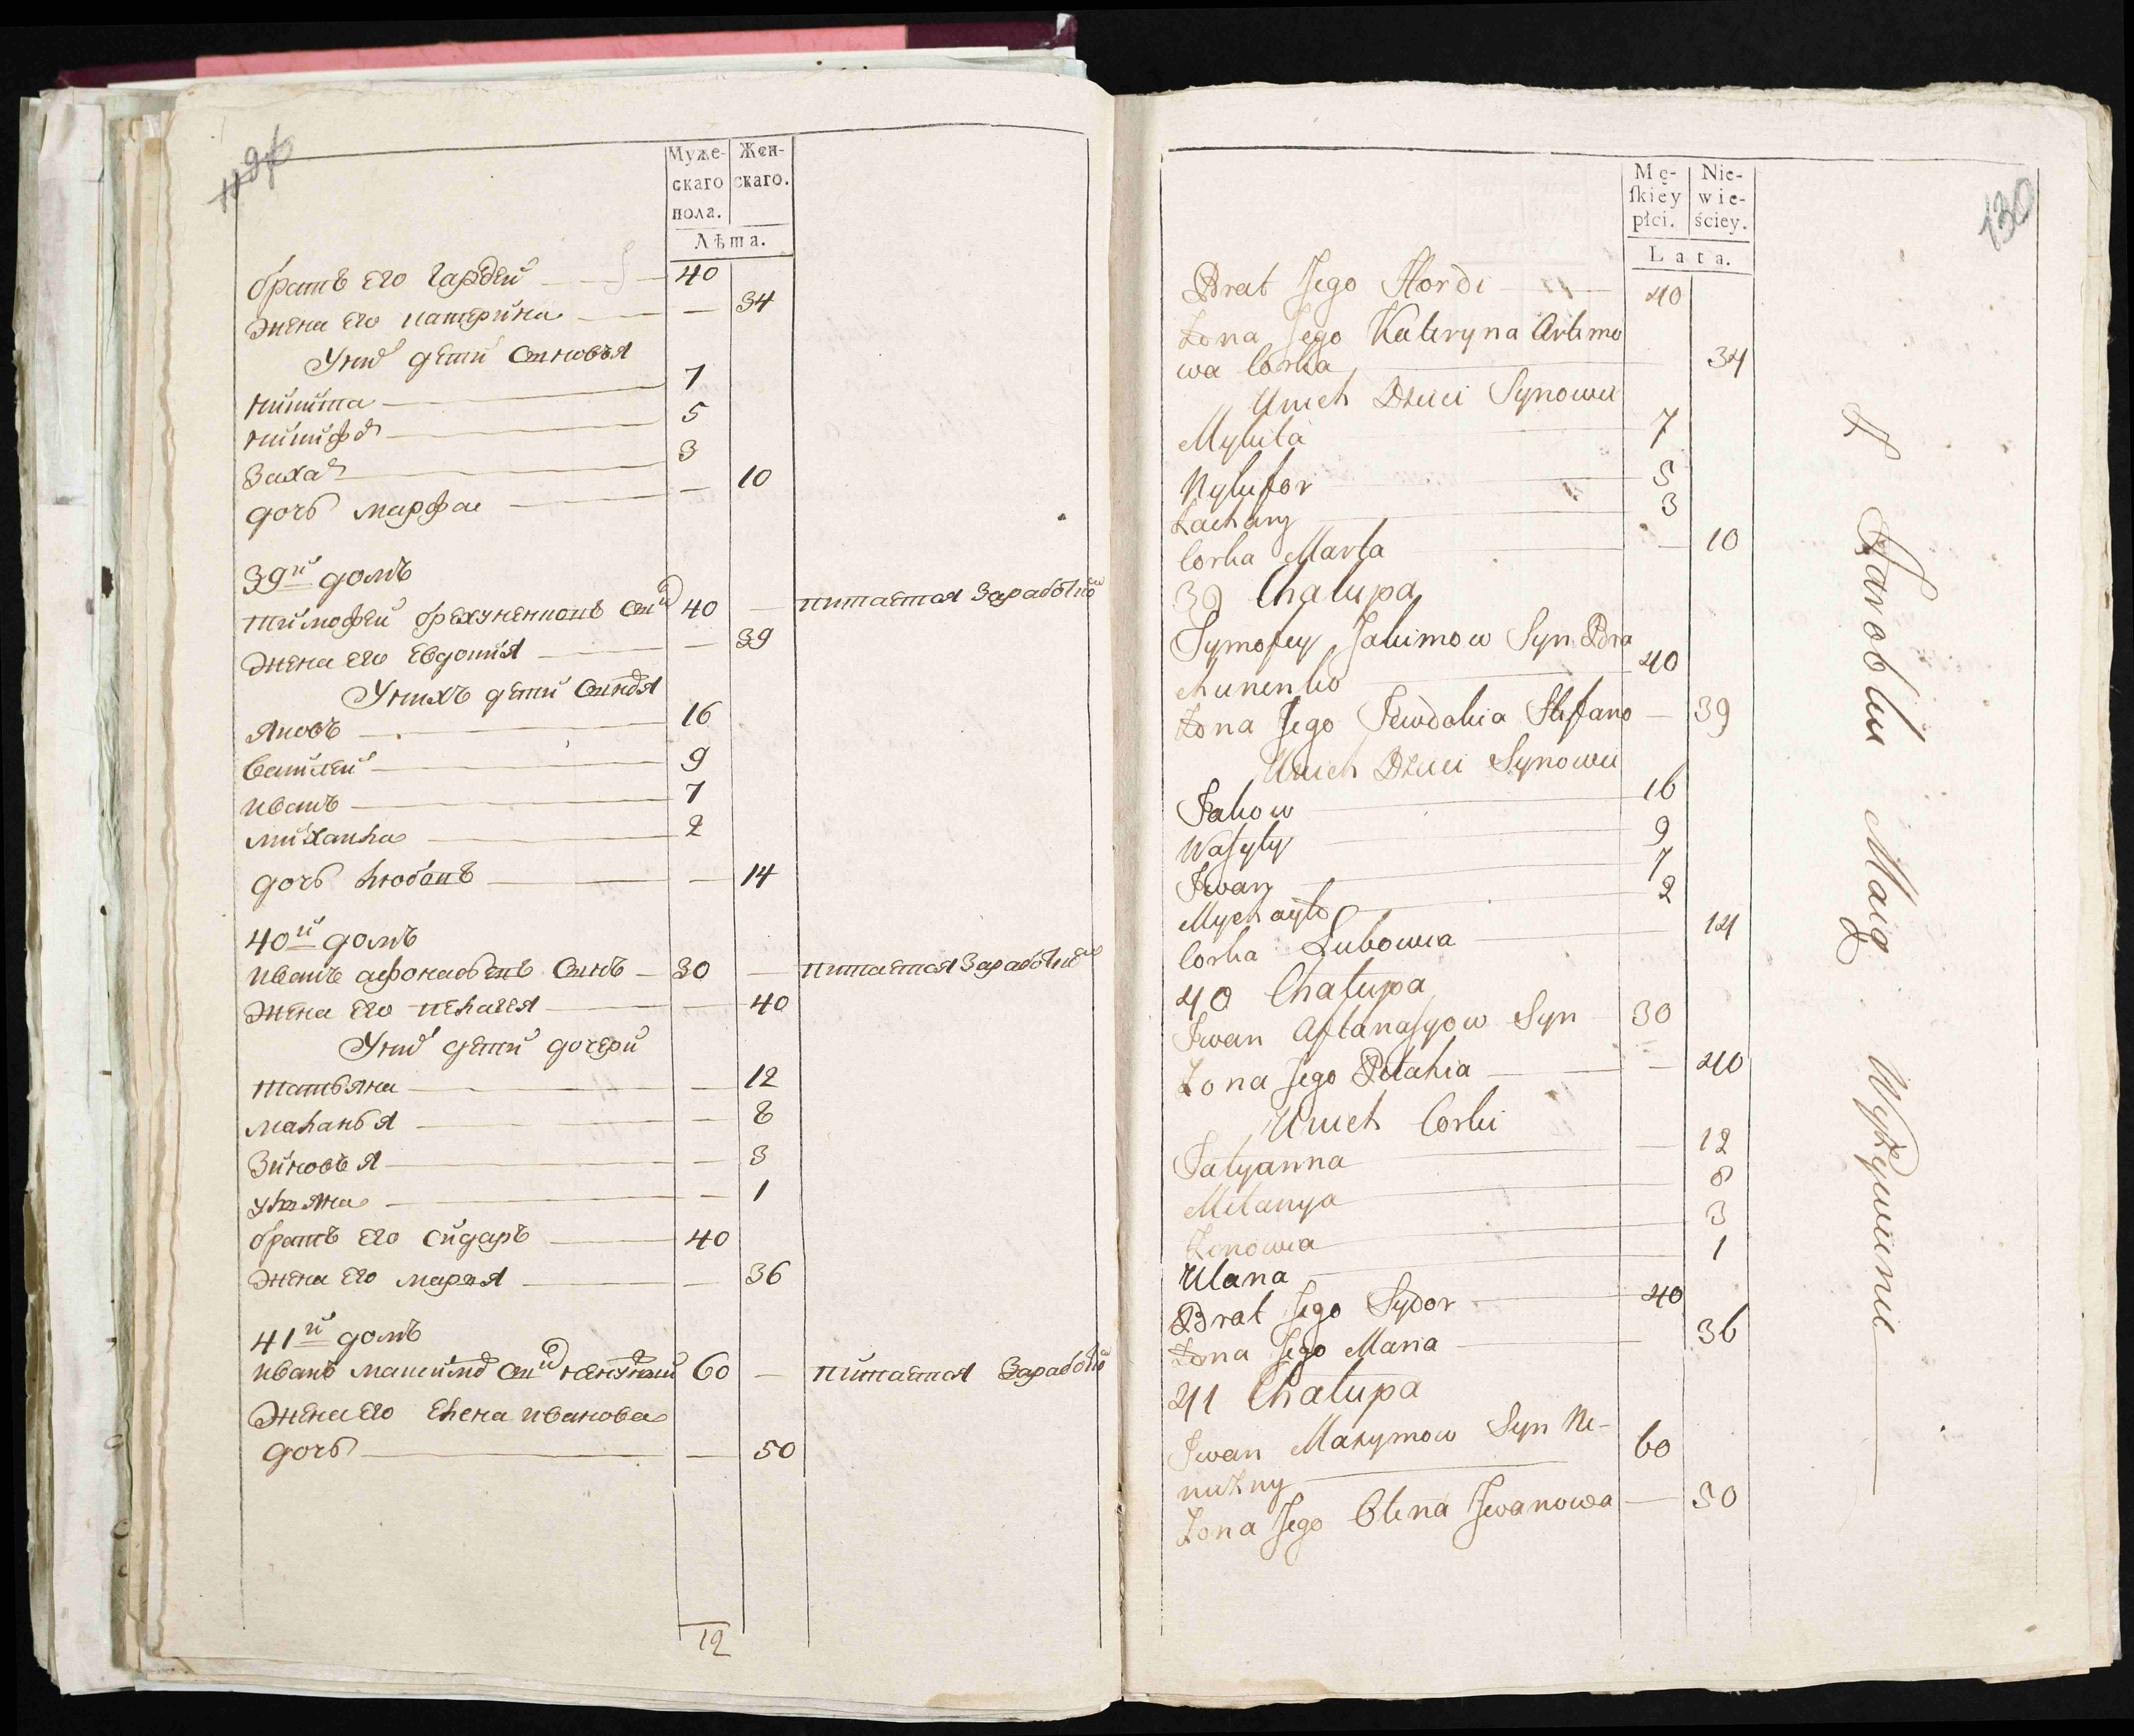 Муже-
скаго
пола.
Жен-
скаго.
Лѣта.
братъ его гардей 40
жена его катерина — 34
У них дети синовья
никита 7
никифор 5
захар 3
дочь марфа — 10
39й домъ
тимофей брехуненковъ син 40 — питается заработком
жена его евдокия — 39
У нихъ дети синовя
яковъ 16
василей 9
иванъ 7
михаила 2
дочь любовъ — 14
40й домъ
иванъ афонасьевъ синъ 30 — питается заработком
жена его пелагея — 40
У них дети дочери
татьяна — 12
маланья — 8
зиновья — 3
уляна — 1
братъ его сидаръ 40
жена его марья — 36
41й домъ
иванъ максимов син ненужний 60 — питается заработком
жена его елена иванова
дочь — 50
12
130
Mę-
skiey
płci.
Nie-
wie-
ściey.
Lata.
Brat Jego Hordi 40
Żona Jego Kateryna Artimo
wa Corka 34
Unich Dzieci Synowie
Mykita 7
Nykifor 5
Zachary 3
Corka Marta — 10
39 Chałupa
Tymofey Jakimow Syn Bra
chunenko 40
Żona Jego Jewdokia Stefano — 39
Unich Dzieci Synowie
Jakow 16
Wasyly 9
Iwan 7
Mychayło 2
Corka Lubowia 14
40 Chałupa
Iwan Aftanasyow Syn 30
Żona Jego Pełahia — 40
Unich Corki
Tatyanna — 12
Mełanya 8
Zenowia 3
Ulana 1
Brat Jego Sydor 40
Żona Jego Maria 36
41 Chałupa
Iwan Maxymow Syn Ne-
nużny 60
Żona Jego Olena Iwanowa — 50
Z Zarobku Maią Wyżywienie